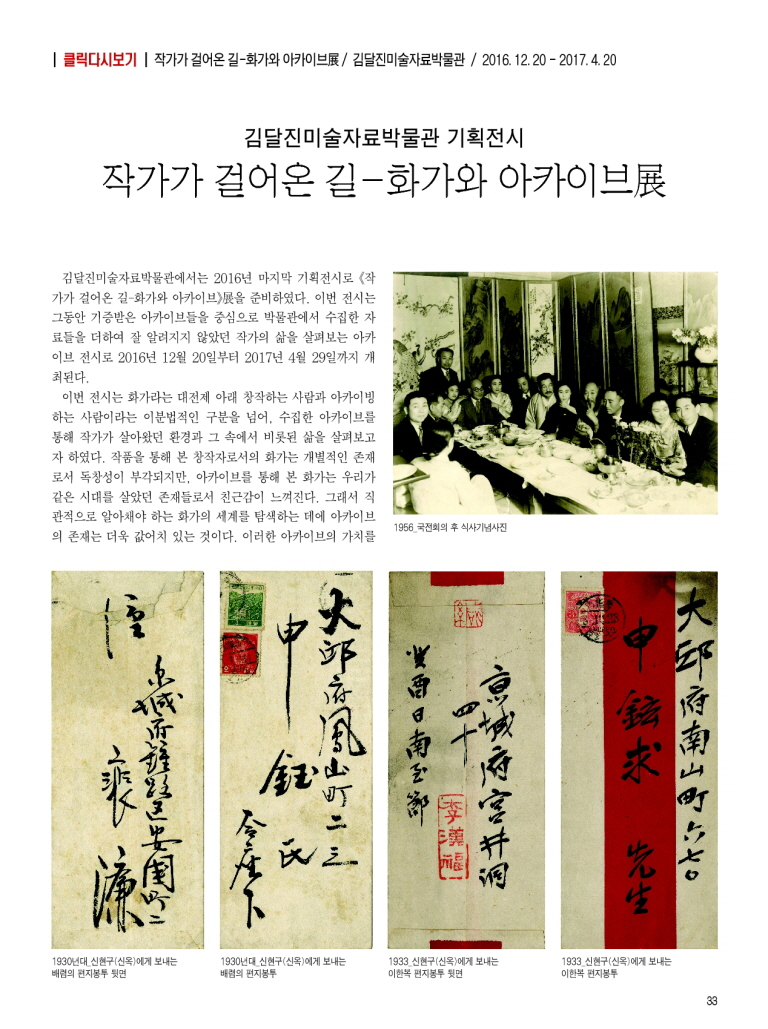 | 클릭다시보기 | 작가가 걸어온 길-화가와 아카이브展 / 김달진미술자료박물관 / 2016. 12. 20 - 2017. 4. 20
김달진미술자료박물관 기획전시
작가가 걸어온 길-화가와 아카이브展
김달진미술자료박물관에서는 2016년 마지막 기획전시로 《작
가가 걸어온 길-화가와 아카이브》展을 준비하였다. 이번 전시는
그동안 기증받은 아카이브들을 중심으로 박물관에서 수집한 자
료들을 더하여 잘 알려지지 않았던 작가의 삶을 살펴보는 아카
이브 전시로 2016년 12월 20일부터 2017년 4월 29일까지 개
최된다.
이번 전시는 화가라는 대전제 아래 창작하는 사람과 아카이빙
하는 사람이라는 이분법적인 구분을 넘어, 수집한 아카이브를
통해 작가가 살아왔던 환경과 그 속에서 비롯된 삶을 살펴보고
자 하였다. 작품을 통해 본 창작자로서의 화가는 개별적인 존재
로서 독창성이 부각되지만, 아카이브를 통해 본 화가는 우리가
같은 시대를 살았던 존재들로서 친근감이 느껴진다. 그래서 직
관적으로 알아채야 하는 화가의 세계를 탐색하는 데에 아카이브
의 존재는 더욱 값어치 있는 것이다. 이러한 아카이브의 가치를
1956_국전회의 후 식사기념사진
京城府鍾路區安國町二
裵
濂
大邱府鳳山町二三
申
鈺
氏
京城府宮井洞
四十
李漢福
癸酉日南至節
大邱府南山町六七〇
申鉉求 先生
1930년대_신현구(신옥)에게 보내는
배렴의 편지봉투 뒷면
1930년대_신현구(신옥)에게 보내는
배렴의 편지봉투
1933_신현구(신옥)에게 보내는
이한복 편지봉투 뒷면
1933_신현구(신옥)에게 보내는
이한복 편지봉투
33